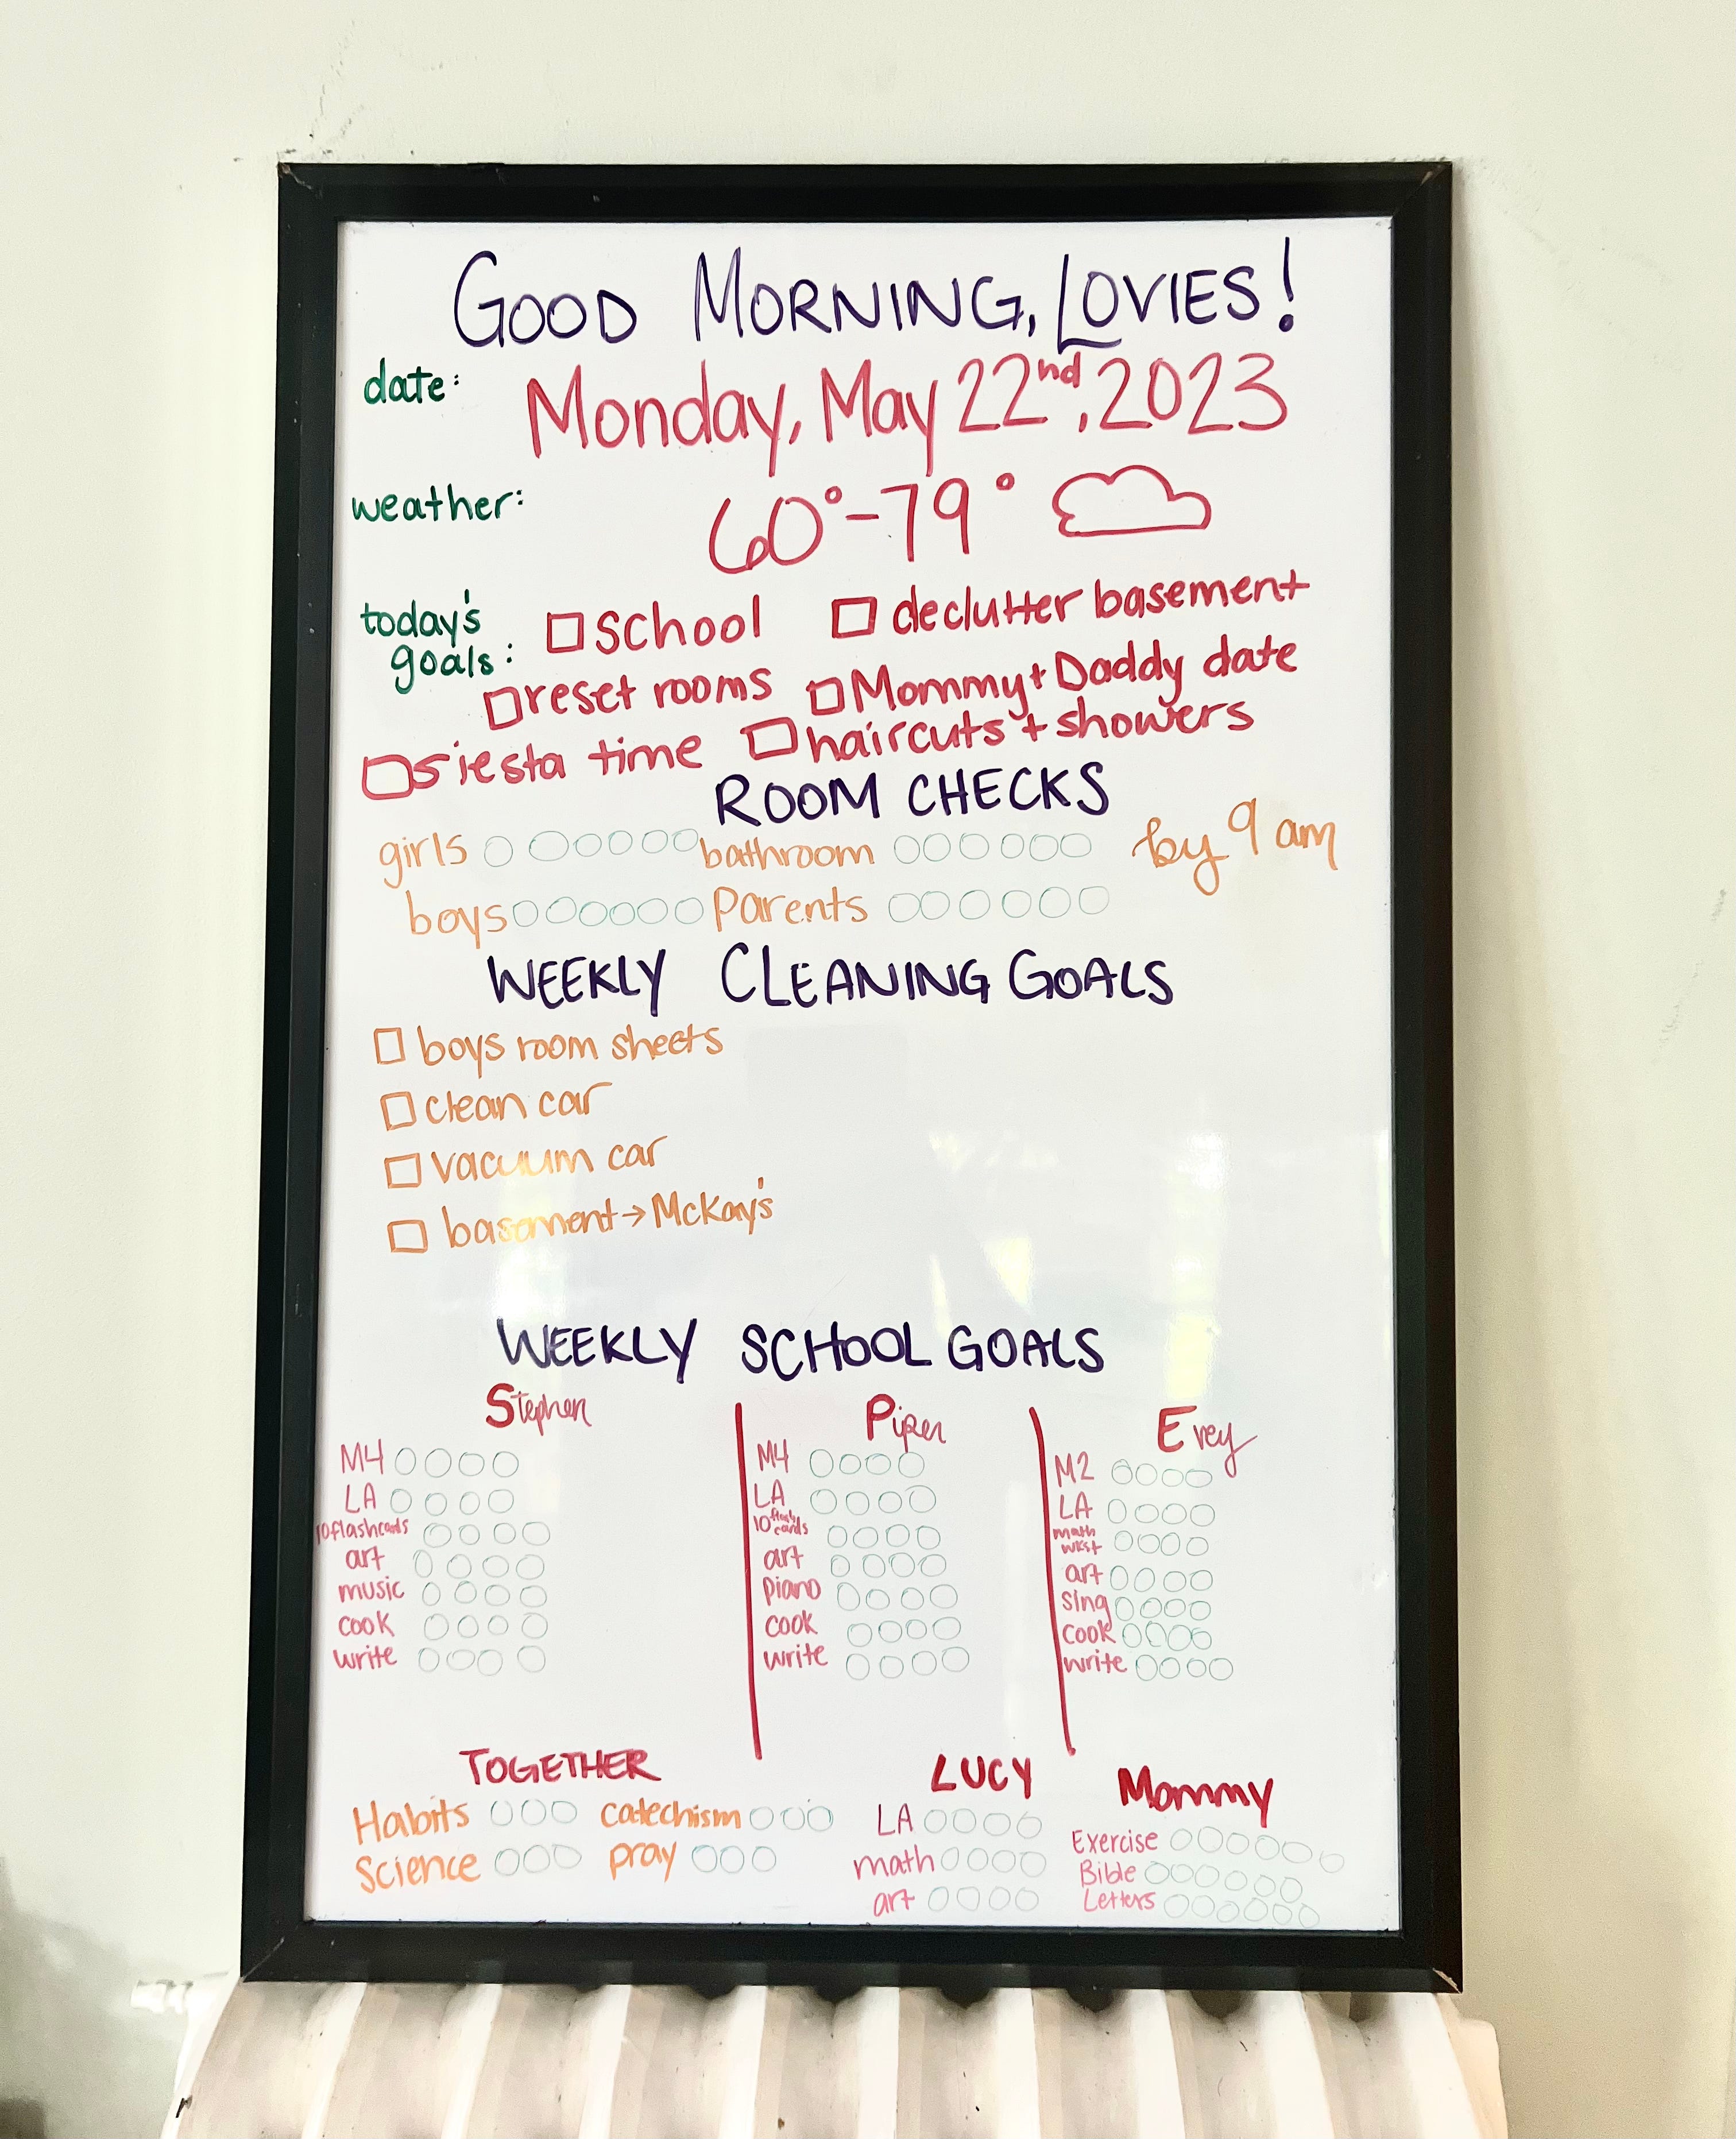 GOOD MORNING, LOVIES!
date: Monday, May 22nd, 2023
weather: 60°-79°
today's goals: school declutter basement
reset rooms Mommy + Daddy date
siesta time haircuts + showers
ROOM CHECKS
girls bathroom by 9 am
boys Parents
WEEKLY CLEANING GOALS
boys room sheets
clean car
vacuum car
basement → McKay's
WEEKLY SCHOOL GOALS
Stephen
M4
LA
10 flashcards
art
music
cook
write
Piper
M4
LA
10 flash cards
art
piano
cook
write
Evey
M2
LA
math wkst
art
sing
cook
write
TOGETHER
Habits catechism
Science pray
LUCY
LA
math
art
Mommy
Exercise
Bible
Letters